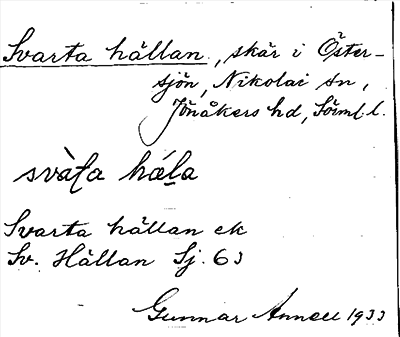 Svarta hällan, skär i Öster-
sjön, Nikolai sn,
Jönåkers hd, Sörml. l.
svàʈa hǽḷa
Svarta hällan ek
Sv. Hällan Sj. 63
Gunnar Annell 1933